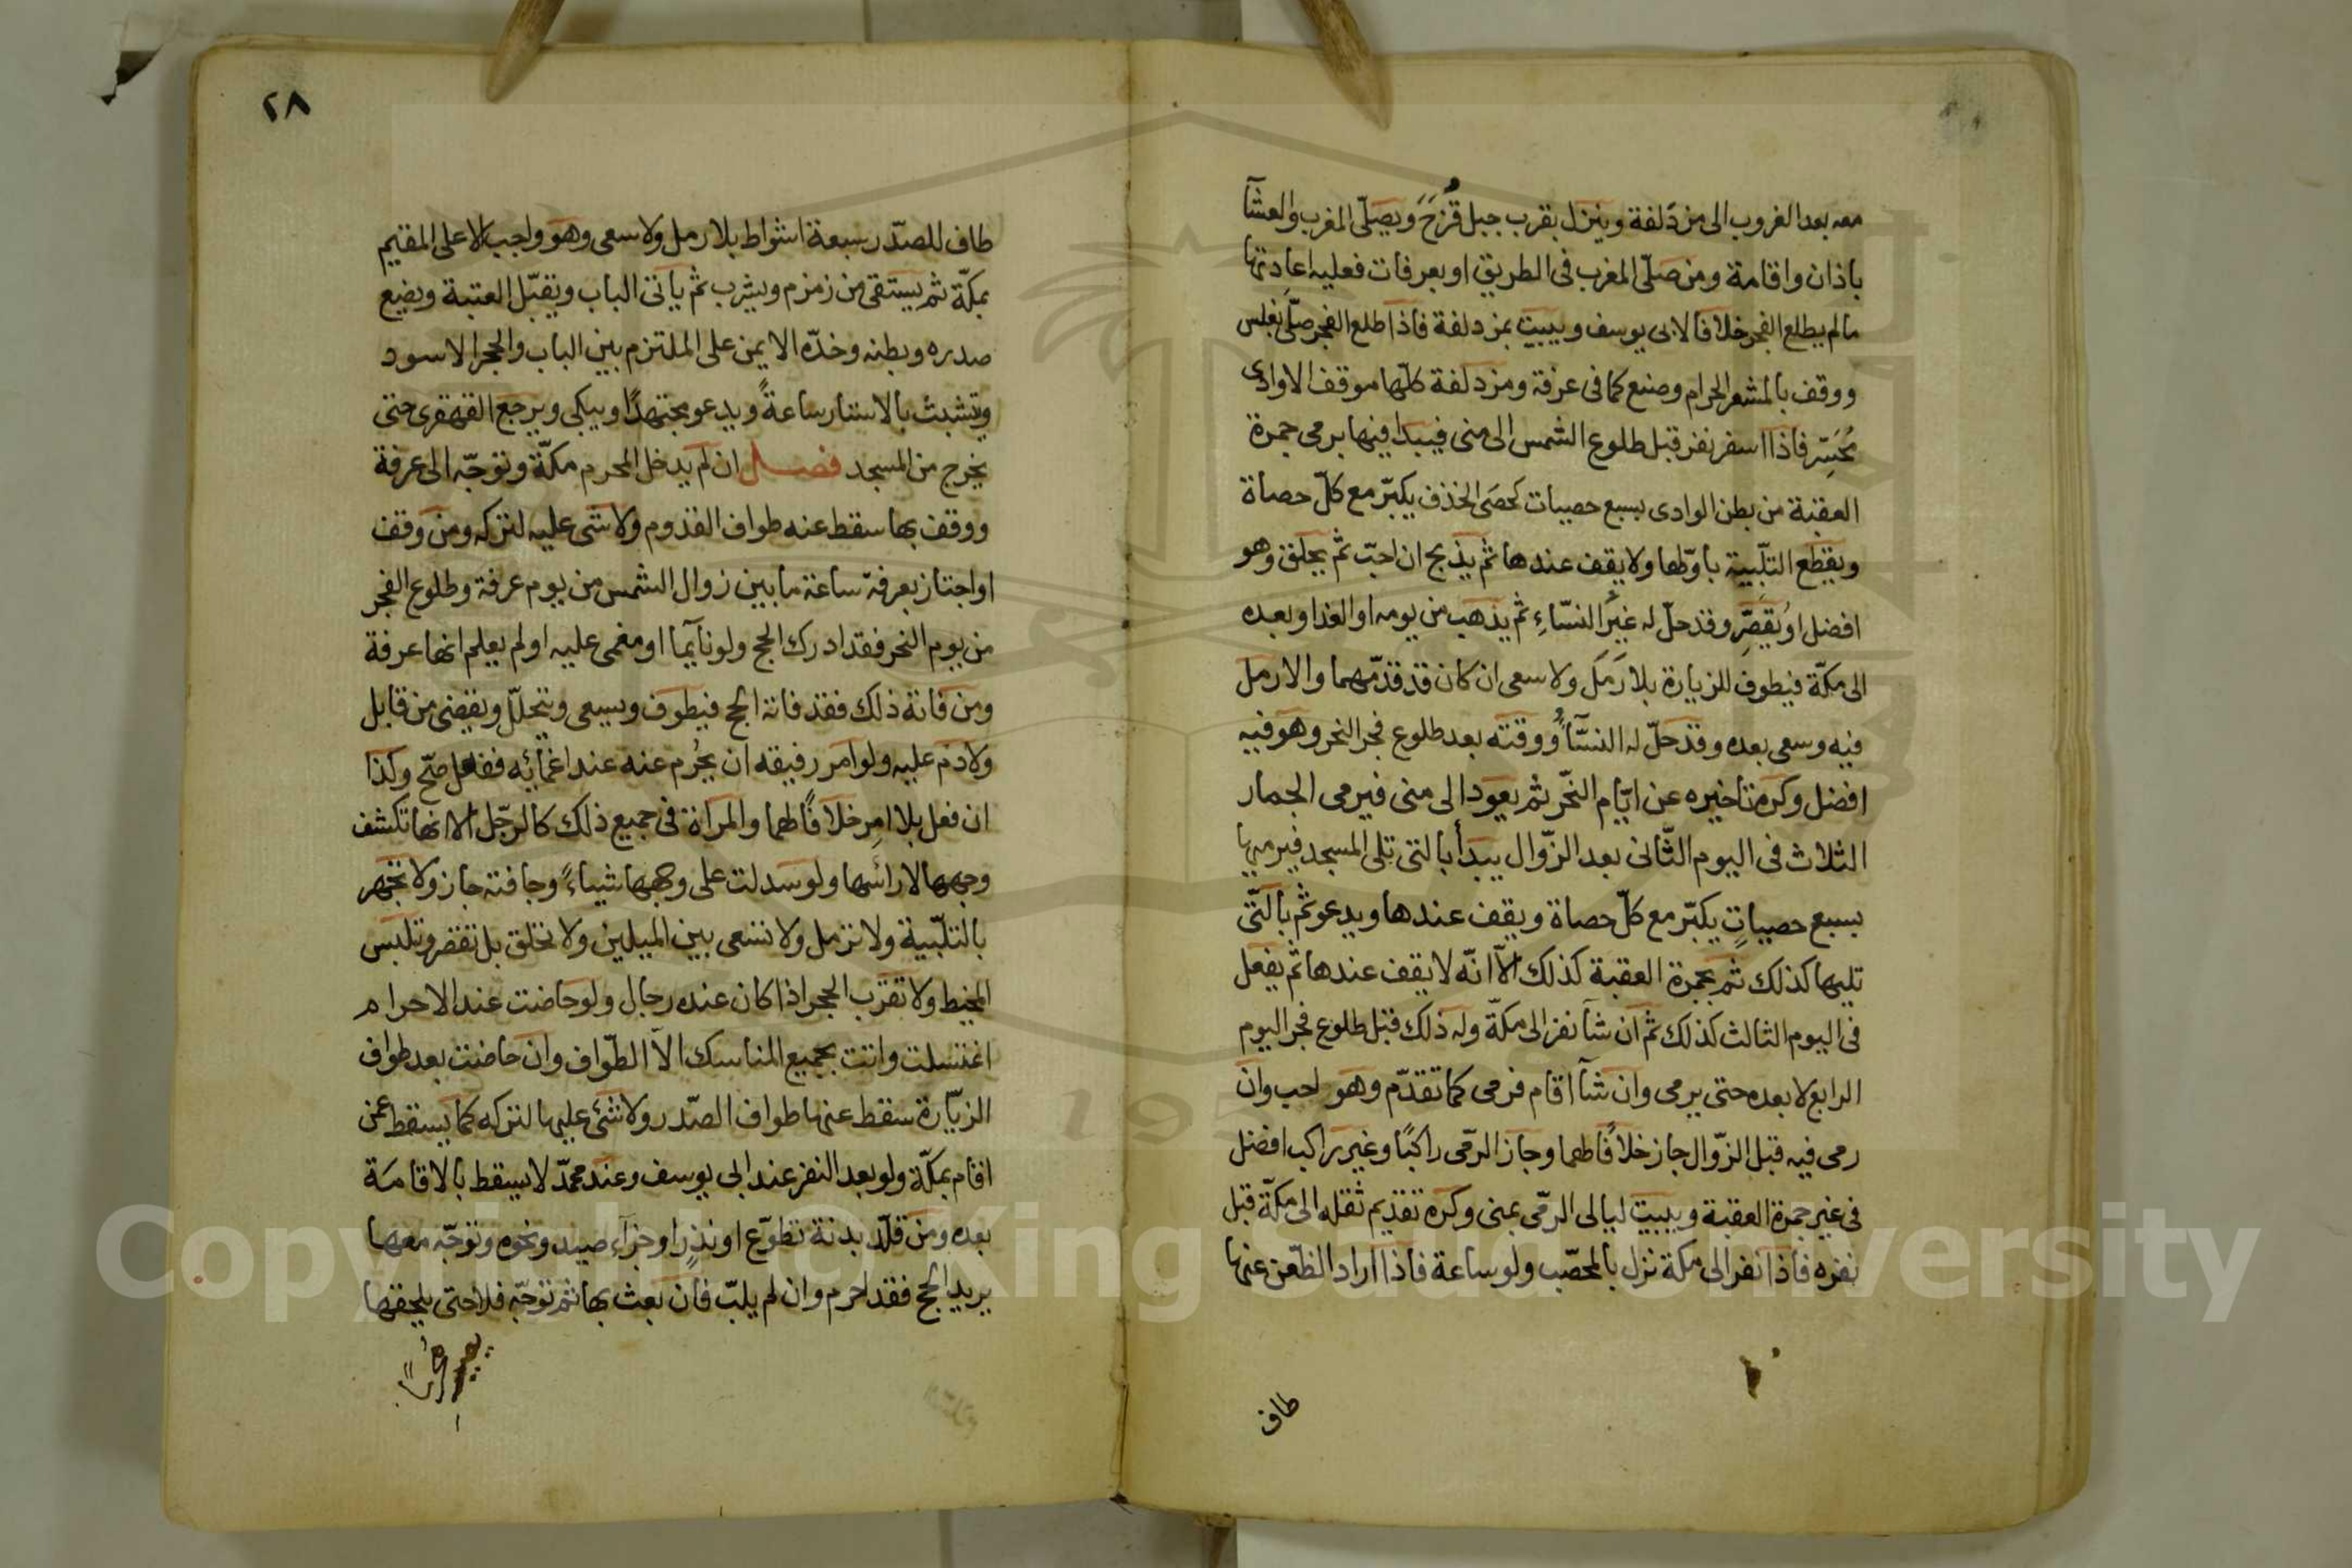 معه بعد الغروب الى مزدلفة وينزل بقرب جبل قُزَحَ ويصلّى المغرب والعشآ
باذان واقامة ومن صلّى المغرب فى الطريق او بعرفات فعليه اعادتها
مالم يطلع الفجر خلافا لابى يوسف ويبيت بمزدلفة فاذا طلع الفجر صلّى بغلس
ووقف بالمشعر الحرام وصنع كما فى عرفة ومزدلفة كلّها موقف الا وادى
مُحَسِّر فاذا اسفر نفر قبل طلوع الشمس الى منى فيبدا فيها برمى جمرة
العقبة من بطن الوادى بسبع حصيات كحصَى الخذف يكبّر مع كلّ حصاة
ويقطع التلّبية باوّلها ولا يقف عندها ثم يذبح ان احبّ ثم يحلق وهو
افضل او يُقَصِّر وقد حلّ له غيرُ النسّاءِ ثم يذهب من يومه او الغد او بعده
الى مكّة فيطوف للزيارة بلا رَمَل ولا سعى ان كان قد قدّمهما والا رمل
فيه وسعى بعده وقد حلّ له النسّآءُ ووقته بعد طلوع فجر النحر وهو فيه
افضل وكره تاخيره عن ايّام النّحر ثم يعود الى منى فيرمى الجمار
الثلاث فى اليوم الثّانى بعد الزّوال يبدأ بالتى تلى المسجد فيرميها
بسبع حصياتٍ يكبّر مع كلّ حصاة ويقف عندها ويدعو ثم بالتّى
تليها كذلك ثم بجمرة العقبة كذلك الّا انّه لا يقف عندها ثم يفعل
فى اليوم الثالث كذلك ثم ان شآ نفر الى مكّة وله ذلك قبل طلوع فجر اليوم
الرابع لا بعده حتى يرمى وان شآ اقام فرمى كما تقدّم وهو احب وان
رمى فيه قبل الزّوال جاز خلافًا لهما وجاز الرّمى راكبًا وغير راكب افضل
فى غير جمرة العقبة ويبيت ليالى الرّمى بمنى وكره تقديم ثقله الى مكّة قبل
نفره فاذا نفر الى مكة نزل بالمحصّب ولو ساعة فاذا اراد الظّعن عنها
طاف
٢٨
طاف للصدّر سبعة اشواط بلا رمل ولا سعى وهو واجب الا على المقيم
بمكّة ثم يستقى من زمزم ويشرب ثم ياتى الباب ويقبّل العتبة ويضع
صدره وبطنه وخدّه الايمن على الملتزم بين الباب والحجر الاسود
ويتشبث بالاستار ساعةً ويدعو مجتهدًا ويبكى ويرجع القهقرى حتى
يخرج من المسجد فصل ان لم يدخل المحرم مكّة وتوجّه الى عرفة
ووقف بها سقط عنه طواف القدوم ولا شى عليه لتركه ومن وقف
او اجتاز بعرفة ساعة ما بين زوال الشمس من يوم عرفة وطلوع الفجر
من يوم النحر فقد ادرك الحج ولو نآيما او مغمى عليه او لم يعلم انها عرفة
ومن فاتة ذلك فقد فاته الحج فيطوف ويسعى ويتحلّل ويقضى من قابل
ولا دم عليه ولو امر رفيقه ان يحُرم عنه عند اغمائه ففعل صحّ وكذا
ان فعل بلا امرِ خلافًا لهما والمرآة فى جميع ذلك كالرجّل الا انها تكشف
وجهها لا رائسها ولو سدلت على وجهها شياءً وجافته جاز ولا تجهر
بالتلّبية ولا ترمل ولا تسعى بين الميلين ولا تحلق بل تقصر وتلبس
المخيط ولا تقرب الحجر اذا كان عنده رجال ولو حاضت عند الاحرام
اغتسلت واتت بجميع المناسك الّا الطّواف وان حاضت بعد طواف
الزيّارة سقط عنها طواف الصّدر ولا شئ عليها لتركه كما يسقط عن
اقام بمكّة ولو بعد النفر عند ابى يوسف وعند محمدّ لا يسقط بالاقامَة
بعده ومن قلّد بدنة تطوّع او نذرٍ او جزآء صيد ونحوه وتوجّه معها
يريد الحج فقد احرم وان لم يلبّ فان بعث بها ثم توجّه فلا حتى يلحقها
Copyright © King Saud University
195